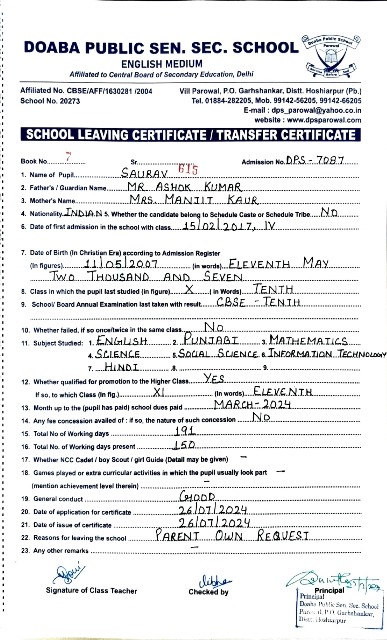 DOABA PUBLIC SEN. SEC. SCHOOL
ENGLISH MEDIUM
Affiliated to Central Board of Secondary Education, Delhi
Doaba Public School
Parowal
Affiliated No. CBSE/AFF/1630281 /2004
Vill Parowal, P.O. Garhshankar, Distt. Hoshiarpur (Pb.)
School No. 20273
Tel. 01884-282205, Mob. 99142-56205, 99142-66205
E-mail : dps_parowal@yahoo.co.in
website : www.dpsparowal.com
SCHOOL LEAVING CERTIFICATE / TRANSFER CERTIFICATE
Book No. 7 Sr. 615 Admission No. DPS-7087
1. Name of Pupil SAURAV
2. Father's / Guardian Name MR. ASHOK KUMAR
3. Mother's Name MRS. MANJIT KAUR
4. Nationality INDIAN 5. Whether the candidate belong to Schedule Caste or Schedule Tribe NO
6. Date of first admission in the school with class 15/02/2017, IV
7. Date of Birth (in Christian Era) according to Admission Register
(In figures) 11/05/2007 (in words) ELEVENTH MAY
TWO THOUSAND AND SEVEN
8. Class in which the pupil last studied (in figure) X ( in Words) TENTH
9. School/ Board Annual Examination last taken with result CBSE - TENTH
10. Whether failed, if so once/twice in the same class NO
11. Subject Studied: 1. ENGLISH 2. PUNJABI 3. MATHEMATICS
4. SCIENCE 5. SOCIAL SCIENCE 6. INFORMATION TECHNOLOGY
7. HINDI 8. 9.
12. Whether qualified for promotion to the Higher Class YES
If so, to which Class (in fig.) XI (in Words) ELEVENTH
13. Month up to the (pupil has paid) school dues paid MARCH-2024
14. Any fee concession availed of : if so, the nature of such concession NO
15. Total No of Working days 191
16. Total No. of Working days present 150
17. Whether NCC Cadet / boy Scout / girl Guide (Detail may be given) —
18. Games played or extra curricular activities in which the pupil usually look part —
(mention achievement level therein) —
19. General conduct GOOD
20. Date of application for certificate 26/07/2024
21. Date of issue of certificate 26/07/2024
22. Reasons for leaving the school PARENT OWN REQUEST
23. Any other remarks —
Signature of Class Teacher
Checked by
Principal
Principal
Doaba Public Sen. Sec. School
P.O. Garhshankar,
Distt. Hoshiarpur